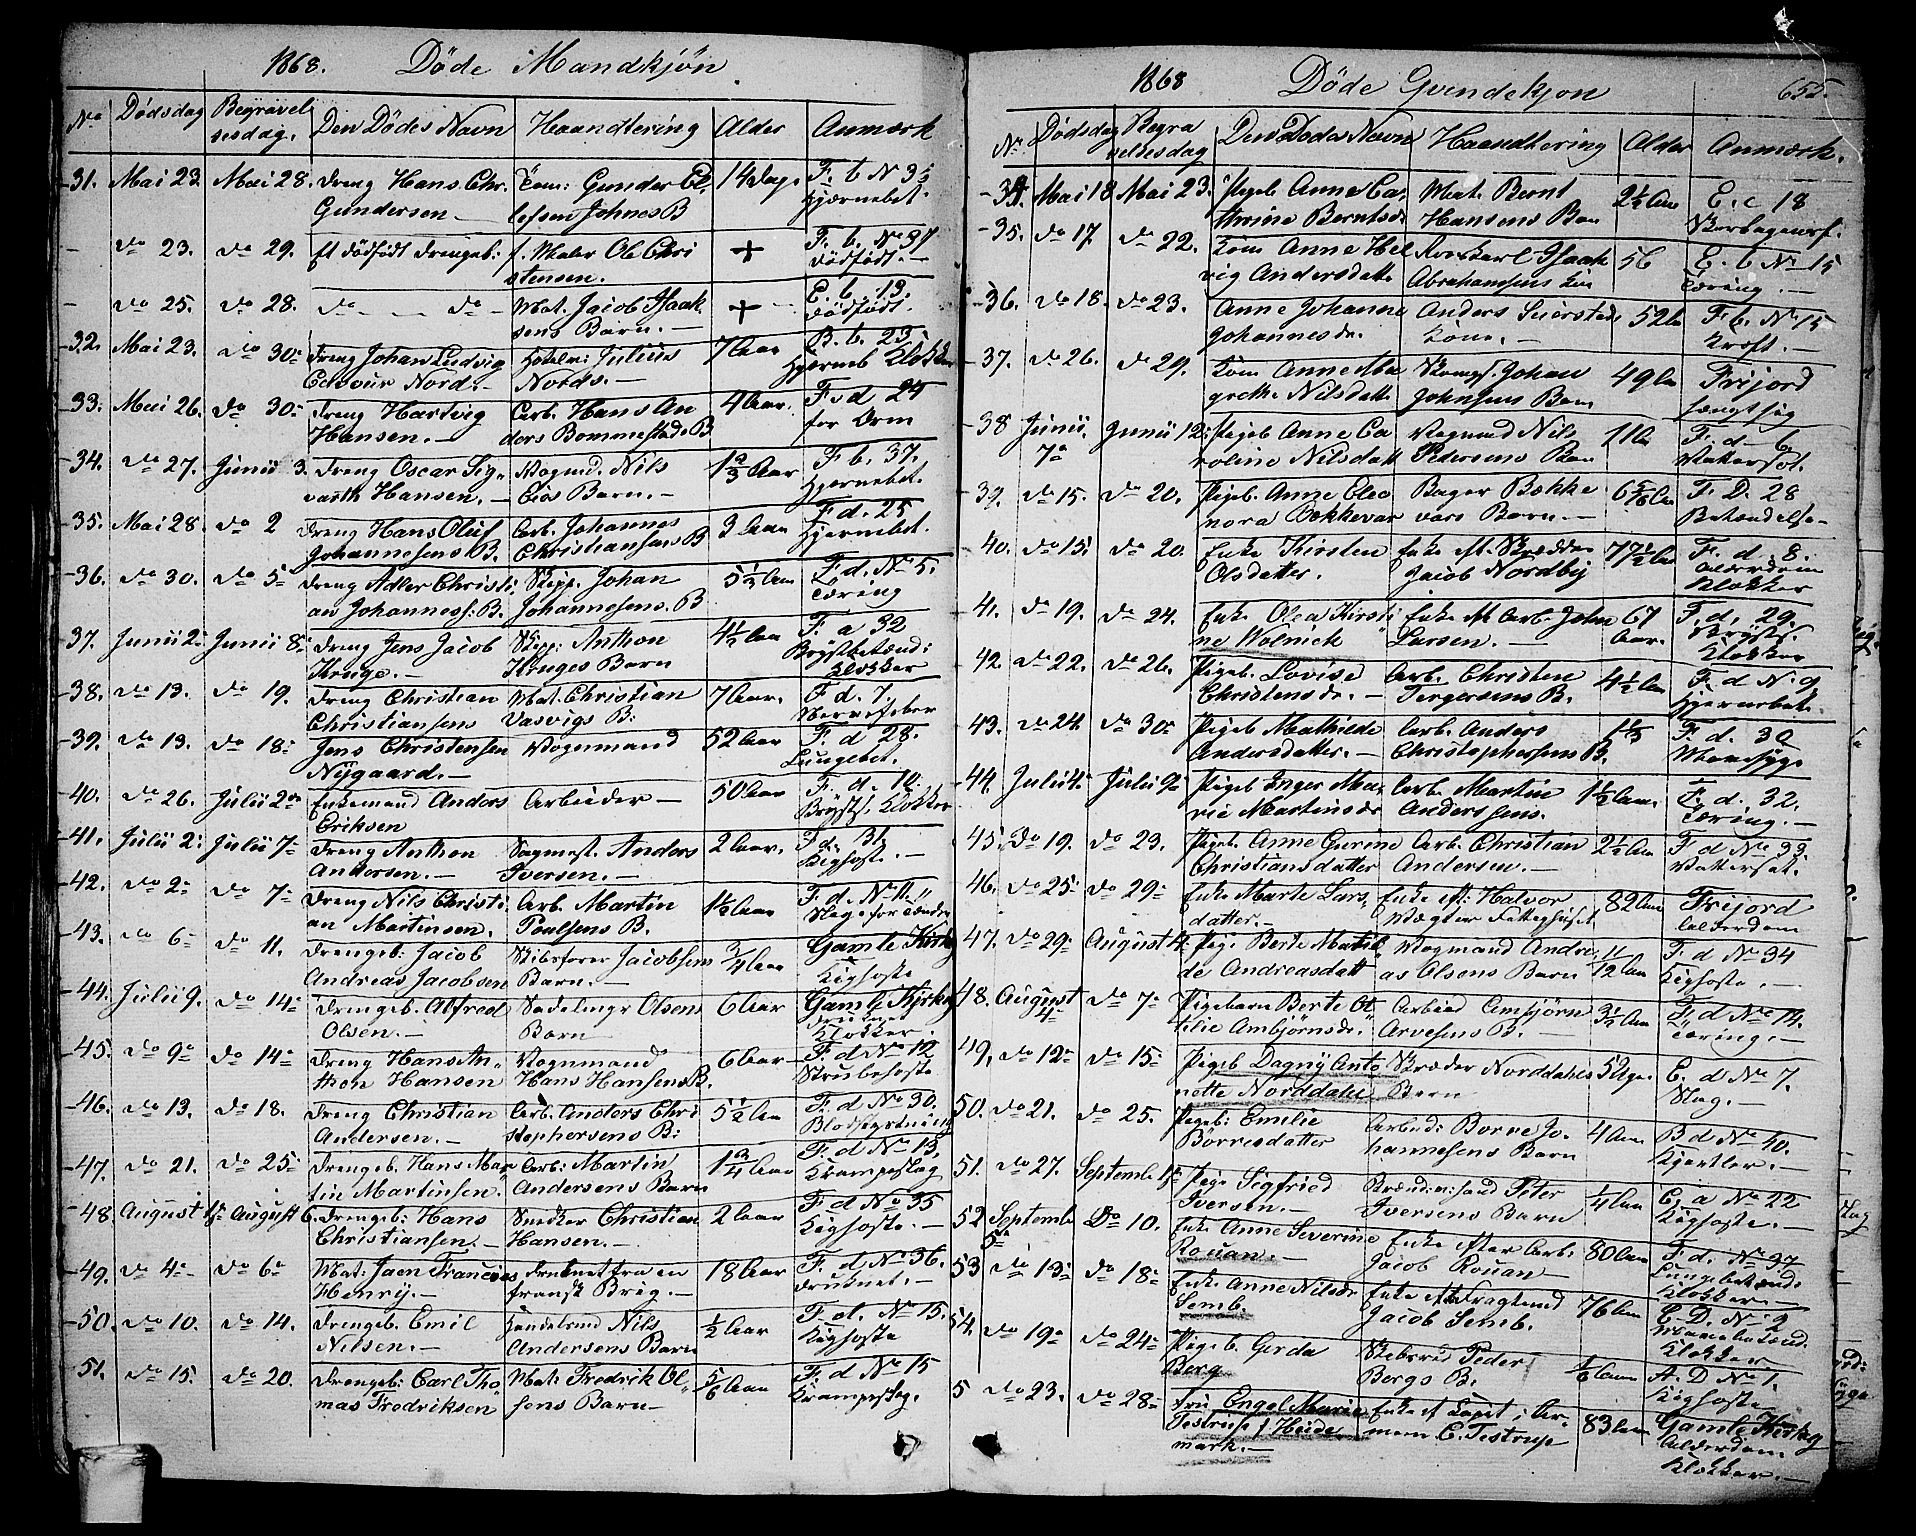 1868. Døde Mandkjøn
No Dødsdag Begravelsesdag. Den Dødes Navn Haandtering Alder Anmærk
31. Mai 23. Mai 28. dreng Hans Chr. Gunder 14 Dage F. b N 35
Gundersen. — Hjærnebet.
- do 23. do 29. et dødfødt drengeb: Ole Chri + F. b. No 37
stensen. dødfødt. —
- do 25. do 28. do do Mat. Jacob Isaak + E. b. 13.
sens Barn. — dødfødt.
32. Mai 23. do 30. dreng Johan Ludvig Julius 7 Aar B. b. 23.
Nord. — Nords. — Hjærneb Klokker
33. Mai 26. do 30. dreng Hartvig Arb. Hans An 4 Aar. F. d 24
Hansen. — ders Bommestads B for Orm
34. do 27. Junii 3. dreng Oscar Sig Vognmd. Nils 1 2/3 Aar F b. 37.
varth Hansen. — Barn. — Hjernebet.
35. Mai 28. do 2 dreng Hans Oluf Arb. Johannes 3 Aar F d. 25
Johannesens B. Christiansens B Hjernebet.
36. do 30. do 5 dreng Adler Christi Skipp. Johan 5 1/2 Aar F. d. No 5.
an Johanness: B. Johannesens. B Tæring
37. Junii 2. Junii 8. dreng Jens Jacob Skipp: Anthon 4 1/2 Aar F. a 32
Kruge. — Kruges Barn Brystbetænd:
Klokker
38. do 13. do 19. dreng Christian Mat. Christian 7 Aar. F d. 7.
Christiansens Vasvigs B. Nervefeber
39. do 13. do 18. Jens Christensen Vognmand 52 Aar F. d 28.
Nygaard. — Lungebet.
40. do 26. Julii 2. Enkemand Anders Arbeider — 50 Aar F. d. 10.
Eriksen Brysts. Klokker
41. Julii 2. Julii 7. dreng Anthon Sagmest. Anders 2 Aar. F d. 31.
Andersen. — Iversen. — Kighoste. —
42. do 2. do 7. dreng Nils Christi Arb. Martin 1 1/2 Aar F. d. No 11.
an Martinsen. Poulsens B. Slag for Tænder
43. do 6. do 11. drengeb: Jacob Skibsfører Jacobsens 3/4 Aar Gamle Kirke
Andreas Jacobsen Barn. — Kighoste
44. Julii 9. do 14. drengeb. Alfred Sadelmgr Olsens 6 Aar Gamle Kirke
Olsen. — Barn Klokker.
45. do 9. do 14. dreng Hans An Vognmand 6 Aar F. d No 12
thon Hansen Hans Hansens B. Strubehoste
46. do 13. do 18. dreng Christian Arb. Anders Chri 5 1/2 Aar F. d No 30.
Andersen. — stophersens B: Blodstyrtning
47. do 21. do 25. drengeb. Hans Mar Arb: Martin 1 3/4 Aar F. d No 13.
tin Martinsen. Andersens Barn Krampeslag
48. August 1. August 6. drengeb: Hans Snedker Christian 2 Aar F d No 35
Christiansen. — Hansen. — Kighoste. —
49. do 4. do 6. Mat: Jaen Francius druknet fra en 18 Aar F. d. No 36.
Henry. — fransk Brig. — druknet. —
50. do 10. do 14. drengeb. Emil Nils 1/2 Aar F. d. No 15.
Nilsen. — Andersens Barn Kighoste
51. do 15. do 20. drengeb: Carl Tho Mat: Fredrik Ol 5/6 Aar F. d No 15
mas Fredriksen sens Barn — Krampeslag.
1868 Døde Qvindekjøn 655.
No. Dødsdag Begravelsesdag Den Dødes Navn Haandtering Alder Anmærk.
34. Mai 18 Mai 23. Pigeb Anne Ca Mat. Bernt 2 1/2 Aar E. c 18
thrine Berntsdr Hansens Barn
35. do 17. do 22. Kone Anne Hel Isaak 56 E. b No 15
vig Andersdatter Abrahamsens Kone Tæring. —
36. do 18. do 23. Anne Johanne Anders Seiersteds 52 Aar F. b. No 15
Johannesdr. Kone. — Kræft. —
37. do 26. do 29. Kone Anne Ma Johan 49 Aar Frijord
grethe Nilsdatter Johnsens
38 Junii Junii 12. Pigeb. Anne Ca Vognmd Nils 11 F. d. 6
7. roline Nilsdatt Pedersens Barn Vattersot.
39. do 15. do 20. Pigeb. Anne Eleo Bager Bække 6 5/6 Aar F. D. 28
nora Bækkevar vars Barn. — Betændelse
40. do 15. do 20. Enke Kirsten Enke eft. Skrædder 77 1/2 Aar F. d. 8.
Olsdatter. Jacob Nordby Alderdom
Klokker
41. do 19. do 24. Enke Olea Kirsti Enke eft Arb. John 67 F. d. 29.
ne Wolnick Larsen. — Aar. Brysts.
Klokker
42. do 22. do 26. Pigeb. Lovise Arb. Christen 4 1/2 Aar F. d No 9
Christensdr. — Torgersens B. Hjernebet.
43. do 24. do 30. Pigeb Mathilde Arb. Anders F d. 30
Andersdatter. — Christophersens B. Mavesyge
44. Julii 4. Julii 9. Pigeb Inger Ma Arb. Martin 1 1/2 Aar. F. d. 32.
rie Martinsdr Anderssens. Tæring. —
45. Do 19. do 23. Pigeb. Anne Gurine Arb. Christian 2 1/2 Aar F d No 33.
Christiansdatter Andersen. Vattersot.
46. do 25. do 29. Enke Marte Lars Enke eft: Halvor 82 Aar Frijord
datter. — Alderdom
47. do 29. August 4. Pige Berte Matil Vognmand Andre 11/12 Aar F. d No 34
de Andreasdatt as Olsens Barn Kighoste. —
48. August do 7. Pigebarn Berte Ot Arbeid Ambjørn 3 1/2 Aar F. d No 14.
4. tilie Ambjørnsdr. Arvesens B. — Tæring. —
49. do 12. do 15. Pigeb Dagny Anto Skræder Norddahls 5 Uger E. d No 7.
nette Norddahl Barn Slag. —
50. do 21. do 25. Pigeb: Emilie Arbeid: Borre Jo 4 Aar B d No 40.
Børresdatter hannesens Barn Kjertler. —
51. do 27. Septemb 1. Pige Sigfried Brændevinsand Peter 1/4 Aar E a No 22
Iversen. — Iversens Barn Kighoste. —
52 Septemb Do 10. Enke Anne Severine Enke efter Arb. 80 Aar F. d. No 37
5. Rouan. — Jacob Rouan — Lungebetænd.
Klokker —
53 do 13. do 18. Enke Anne Nilsdr Enke eft Fragtemd 76 Aar E. D. No 9
Semb. Jacob Semb.
Klokker —
54. do 19. do 24. Pigeb. Gerda Peder 1/6 Aar A. D No 1.
Berg Bergs B. Kighoste. —
5 do 23. do 28. Fru Engel Marie Enke eft Capit. i Ar 83 Aar Gamle Kirke
Testrup f. Heide meen C. Testrup Alderdom
mark. — Klokker. —